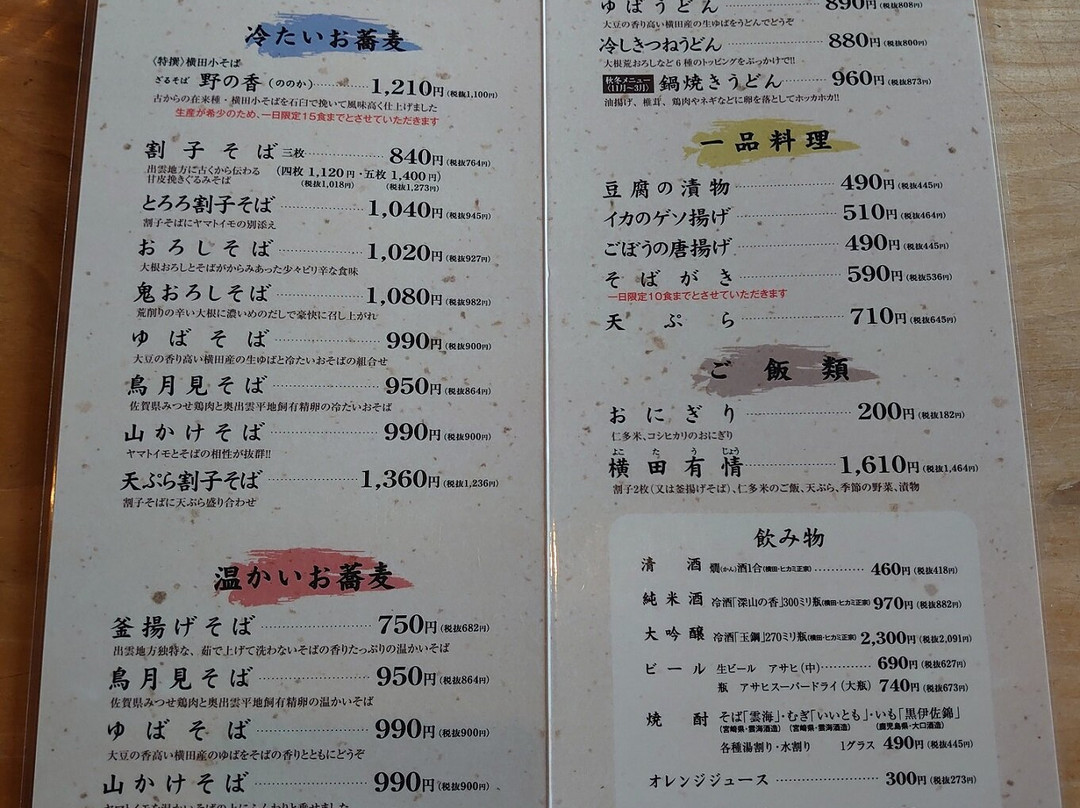 冷たいお蕎麦
〈特撰〉横田小そば
ざるそば 野の香(ののか) 1,210円(税抜1,100円)
古からの在来種・横田小そばを石臼で挽いて風味高く仕上げました
生産が希少のため、一日限定15食までとさせていただきます
割子そば 三枚 840円(税抜764円)
出雲地方に古くから伝わる (四枚 1,120円・五枚 1,400円)
甘皮挽きぐるみそば (税抜1,018円) (税抜1,273円)
とろろ割子そば 1,040円(税抜945円)
割子そばにヤマトイモの別添え
おろしそば 1,020円(税抜927円)
大根おろしとそばがからみあった少々ピリ辛な食味
鬼おろしそば 1,080円(税抜982円)
荒削りの辛い大根に濃いめのだしで豪快に召し上がれ
ゆばそば 990円(税抜900円)
大豆の香り高い横田産の生ゆばと冷たいおそばの組合せ
鳥月見そば 950円(税抜864円)
佐賀県みつせ鶏肉と奥出雲平地飼有精卵の冷たいおそば
山かけそば 990円(税抜900円)
ヤマトイモとそばの相性が抜群!!
天ぷら割子そば 1,360円(税抜1,236円)
割子そばに天ぷら盛り合わせ
温かいお蕎麦
釜揚げそば 750円(税抜682円)
出雲地方独特な、茹で上げて洗わないそばの香りたっぷりの温かいそば
鳥月見そば 950円(税抜864円)
佐賀県みつせ鶏肉と奥出雲平地飼有精卵の温かいそば
ゆばそば 990円(税抜900円)
大豆の香高い横田産のゆばをそばの香りとともにどうぞ
山かけそば 990円(税抜900円)
ヤマトイモを温かいそばの上にふんわりと乗せました
ゆばうどん 890円(税抜808円)
大豆の香り高い横田産の生ゆばをうどんでどうぞ
冷しきつねうどん 880円(税抜800円)
大根荒おろしなど6種のトッピングをぶっかけで!!
秋冬メニュー(11月〜3月) 鍋焼きうどん 960円(税抜873円)
油揚げ、椎茸、鶏肉やネギなどに卵を落としてホッカホカ!!
一品料理
豆腐の漬物 490円(税抜445円)
イカのゲソ揚げ 510円(税抜464円)
ごぼうの唐揚げ 490円(税抜445円)
そばがき 590円(税抜536円)
一日限定10食までとさせていただきます
天ぷら 710円(税抜645円)
ご飯類
おにぎり 200円(税抜182円)
仁多米、コシヒカリのおにぎり
よこ た う じょう
横田有情 1,610円(税抜1,464円)
割子2枚(又は釜揚げそば)、仁多米のご飯、天ぷら、季節の野菜、漬物
飲み物
清酒 燗(かん)酒1合(横田・ヒカミ正宗) 460円(税抜418円)
純米酒 冷酒「深山の香」300ミリ瓶(横田・ヒカミ正宗) 970円(税抜882円)
大吟醸 冷酒「玉鋼」270ミリ瓶(横田・ヒカミ正宗) 2,300円(税抜2,091円)
ビール 生ビール アサヒ(中) 690円(税抜627円)
瓶 アサヒスーパードライ(大瓶) 740円(税抜673円)
焼酎 そば「雲海」・むぎ「いいとも」・いも「黒伊佐錦」
(宮崎県・雲海酒造) (宮崎県・雲海酒造) (鹿児島県・大口酒造)
各種湯割り・水割り 1グラス 490円(税抜445円)
オレンジジュース 300円(税抜273円)